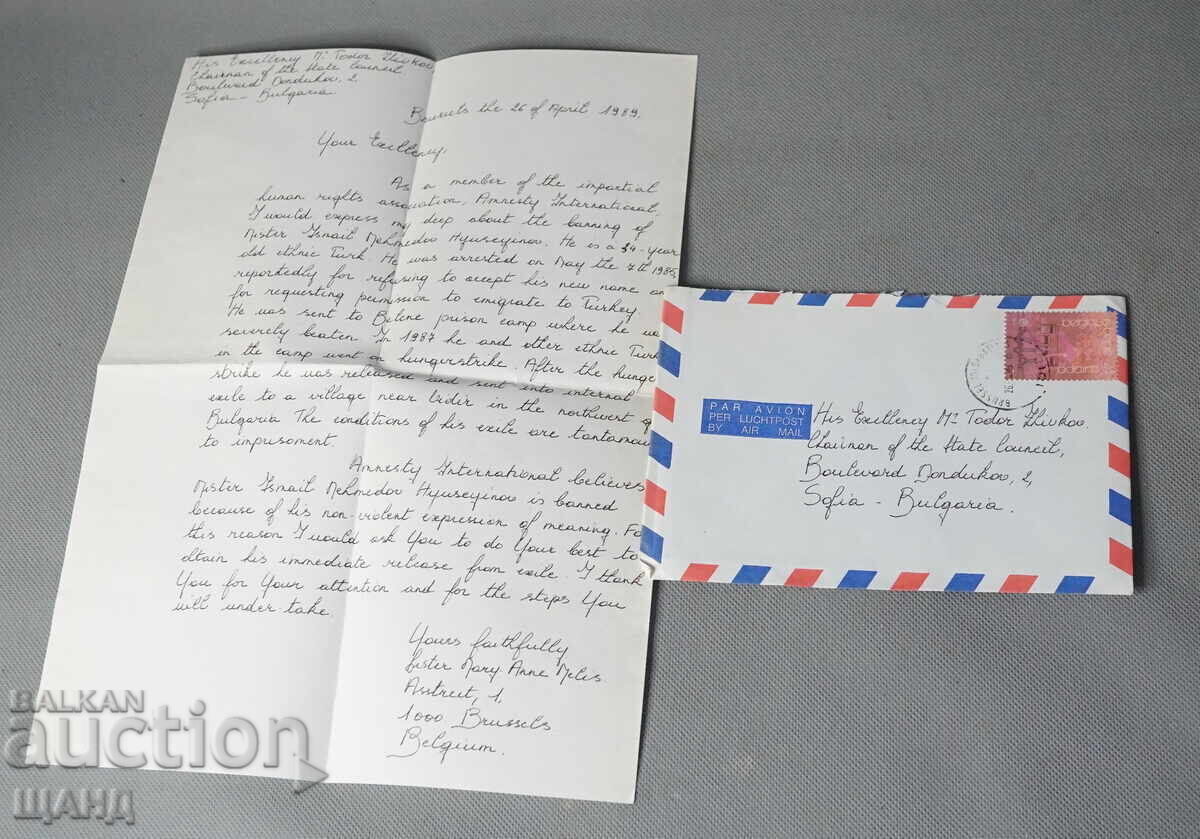 His Exellency Mr Todor Zhivkov
Chairman of the State Council
Boulevard Dondukov, 2
Sofia - Bulgaria.
Brussels the 26 of April 1989.
Your Exellency,
As a member of the impartial
human rights association, Amnesty International,
I would express my deep about the banning of
Mister Ismail Mehmedov Hyuseyinov. He is a 34-year
old ethnic Turk. He was arrested on May the 7th 1985,
reportedly for refusing to accept his new name
for requesting permission to emigrate to Turkey.
He was sent to Belene prison camp where he
severely beaten. In 1987 he and other ethnic Turk
in the camp went on hungerstrike. After the hunge
strike he was released and sent into internal
exile to a village near in the northwest of
Bulgaria The conditions of his exile are tantamou
to imprisonment.
Amnesty International believes
Mister Ismail Mehmedov Hyuseyinov is banned
because of his non-violent expression of meaning. Fo
this reason I would ask You to do Your best to
obtain his immediate release from exile. I thank
You for Your attention and for the steps You
will under take.
Yours faithfully
Sister Mary Anne Melis
Asstreet, 1,
1000 Brussels
Belgium.
PAR AVION
PER LUCHTPOST
BY AIR MAIL
His Exellency Mr Todor Zhivkov.
Chairman of the State Council,
Boulevard Dondukov, 2,
Sofia - Bulgaria.
BALKAN
auction
ЩАНД